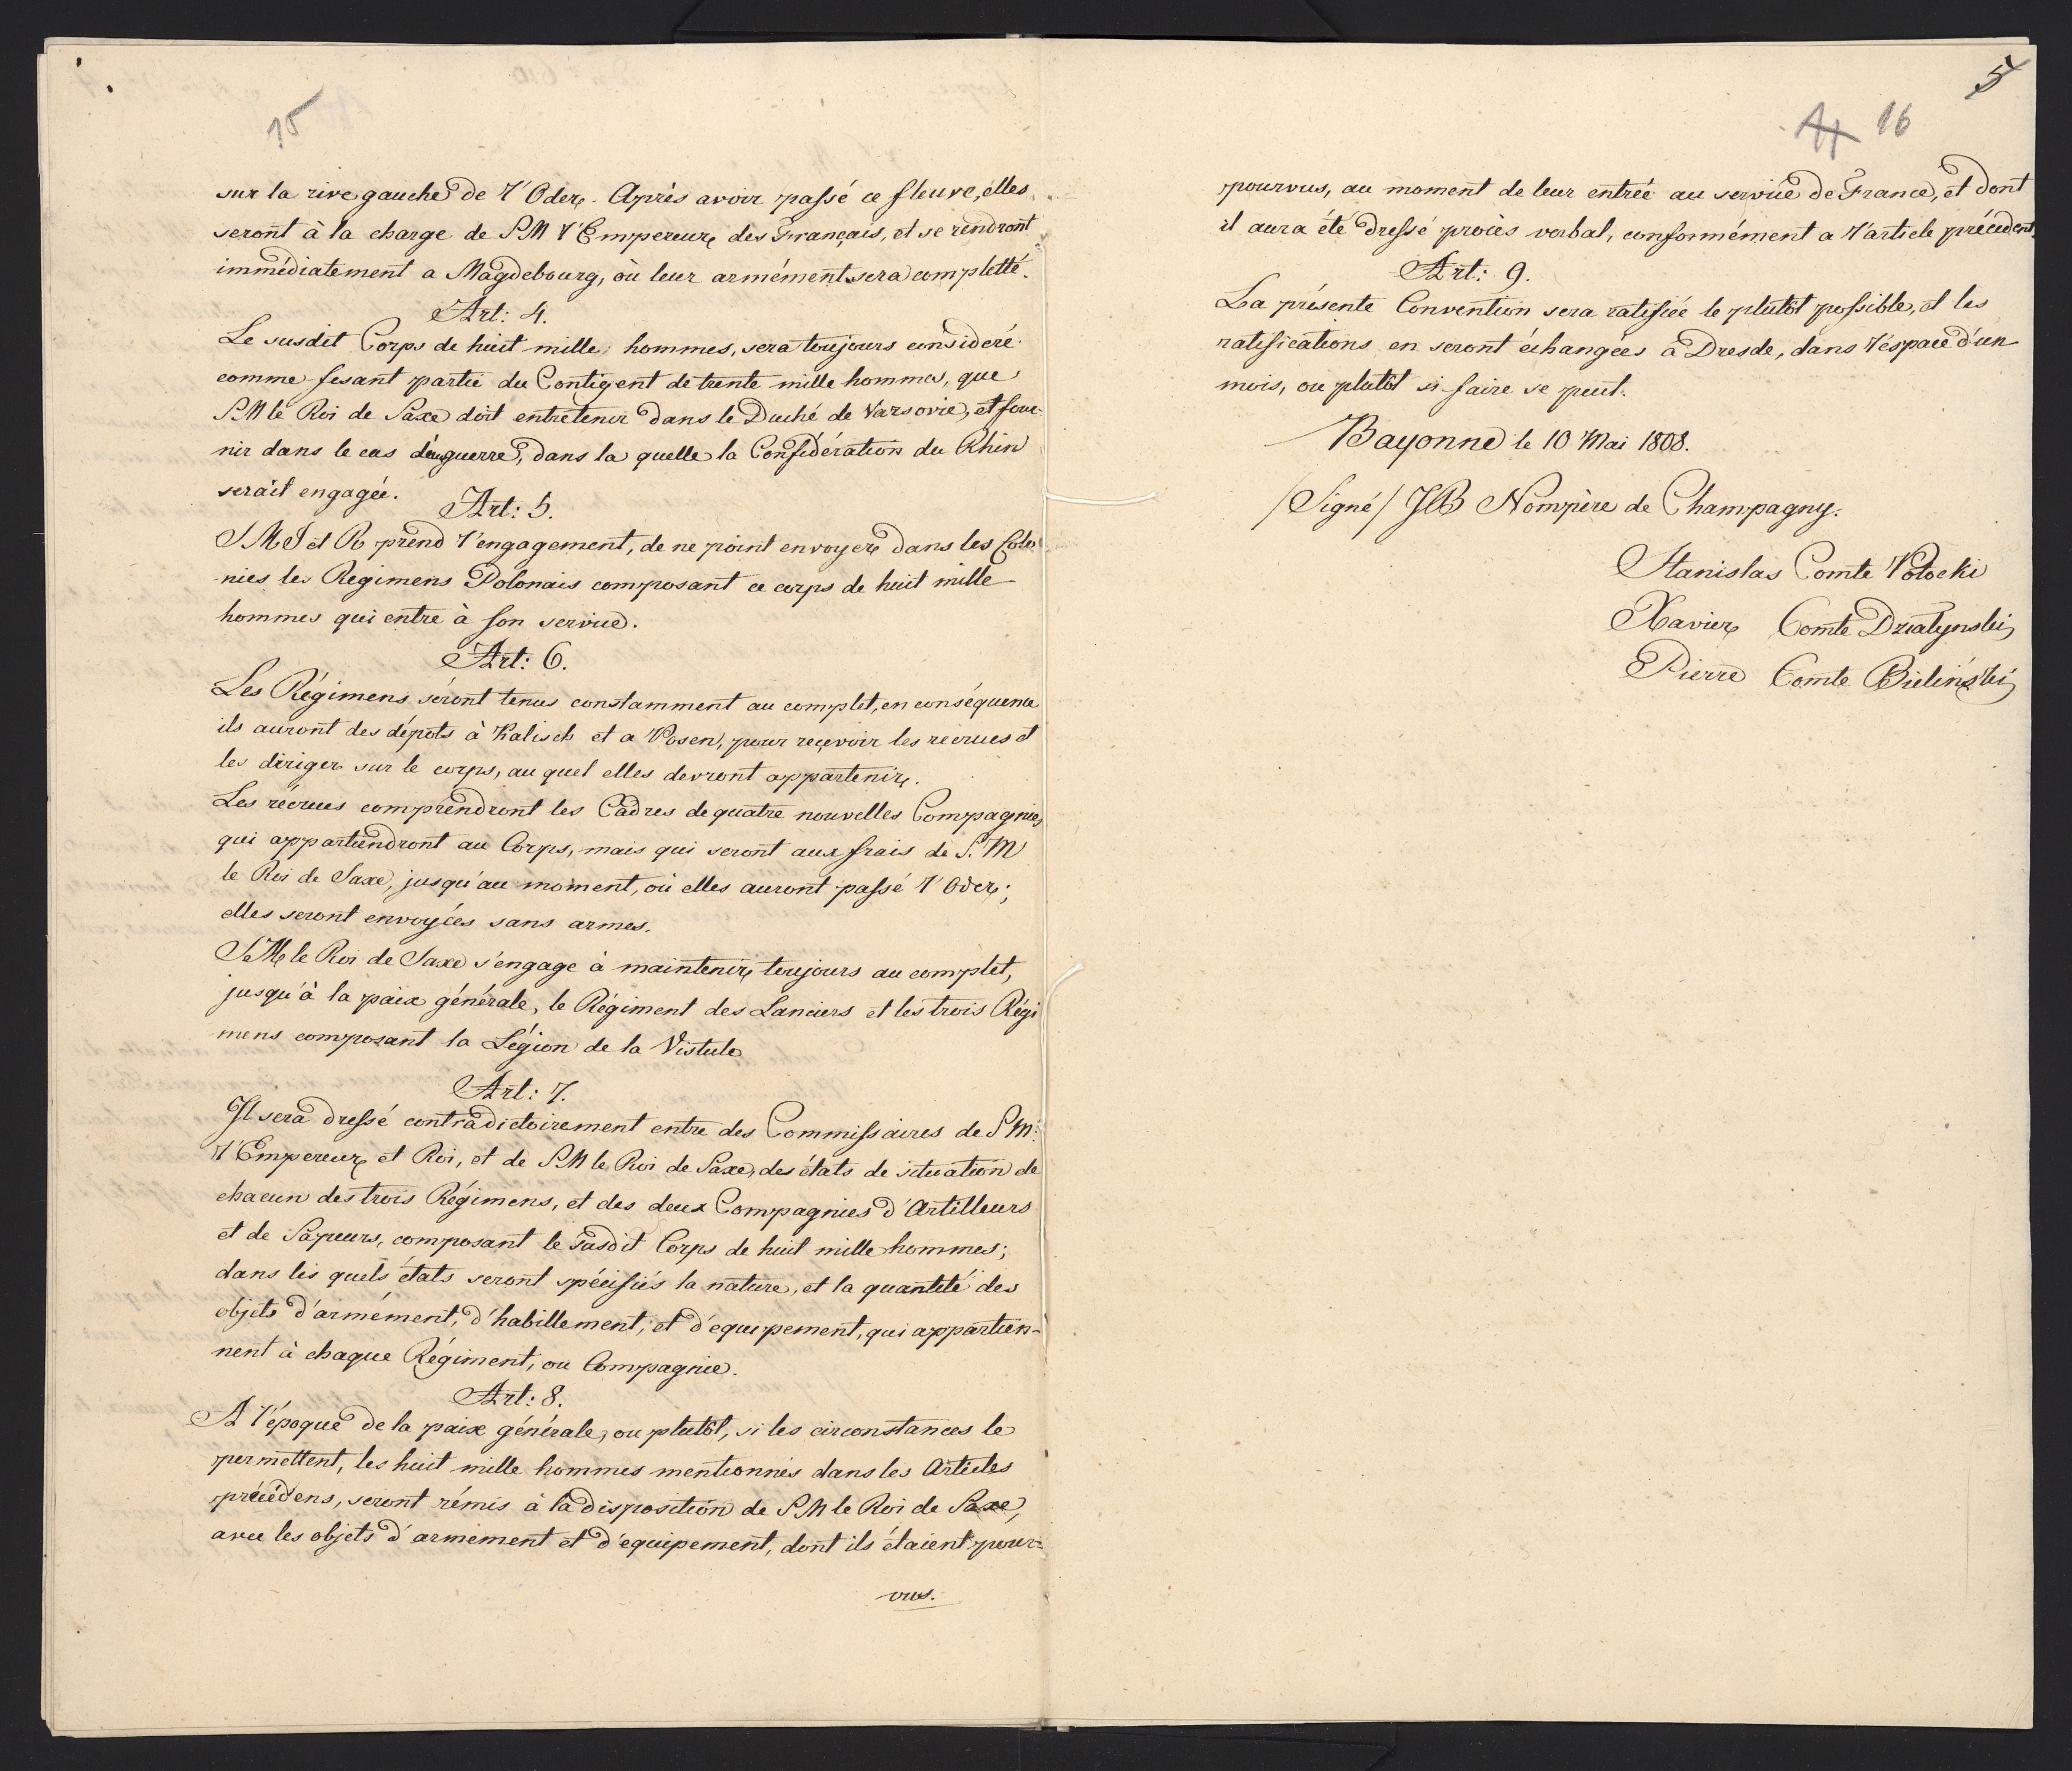 15
sur la rive gauche de l'Oder. Après avoir passé ce fleuve, elles
seront à la charge de S.M l'Empereur des Français, et se rendront
immédiatement a Magdebourg, où leur armément sera complètté.
Art: 4.
Le susdit Corps de huit mille hommes, sera toujours consideré
comme fesant partie du Contigent de trente mille hommes, que
S.M le Roi de Saxe doit entretenir dans le Duché de Varsovie, et four-
nir dans le cas de guerre, dans la quelle la Conféderation du Rhin
serait engagée.
Art: 5.
S M I et R prend l'engagement, de ne point envoyer dans les Colo
nies les Regimens Polonais composant ce corps de huit mille
hommes qui entre à son service.
Art: 6.
Les Régimens séront tenus constamment au complet, en conséquence
ils auront des dépots à Kalisch et a Posen, pour reçevoir les recrues et
les diriger sur le corps, au quel elles devront appartenir.
Les récrues comprendront les Cadres de quatre nouvelles Compagnies
qui appartiendront au Corps, mais qui seront aux frais de S. M
le Roi de Saxe, jusqu'au moment, où elles auront passé l'Oder;
elles seront envoyées sans armes.
S.M le Roi de Saxe s'engage à maintenir toujours au complet,
jusqu'à la paix générale, le Régiment des Lanciers et les trois Régi
mens composant la Légion de la Vistule
Art: 7.
Il sera dressé contradictoirement entre des Commissaires de S M.
l'Empereur et Roi, et de S.M le Roi de Saxe, des états de situation de
chacun des trois Régimens, et des deux Compagnies d'Artilleurs
et de Sapeurs, composant le susdit Corps de huit mille hommes;
dans les quels états seront spécifiés la nature, et la quantité des
objets d'armément, d'habillement, et d'equipement, qui appartien-
nent à chaque Régiment, ou Compagnie.
Art: 8.
A l'époque de la paix générale, ou plutôt, si les circonstances le
permettent, les huit mille hommes mentionnés dans les Articles
précédens, seront rémis à la disposition de S.M le Roi de Saxe,
avec les objets d'armement et d'equipement, dont ils étaient pour-
vus.
5
16
pourvus, au moment de leur entrée au service de France, et dont
il aura été dressé procès verbal, conformément a l'article précédent.
Art: 9.
La présente Convention sera ratifiée le plutôt possible, et les
ratifications en seront échangées à Dresde, dans l'éspace d'un
mois, ou plutôt si faire se peut.
Bayonne le 10 Mai 1808.
/Signé/ JB Nompère de Champagny.
Stanislas Comte Potocki
Xavier Comte Dzialynski
Pierre Comte Bieliński